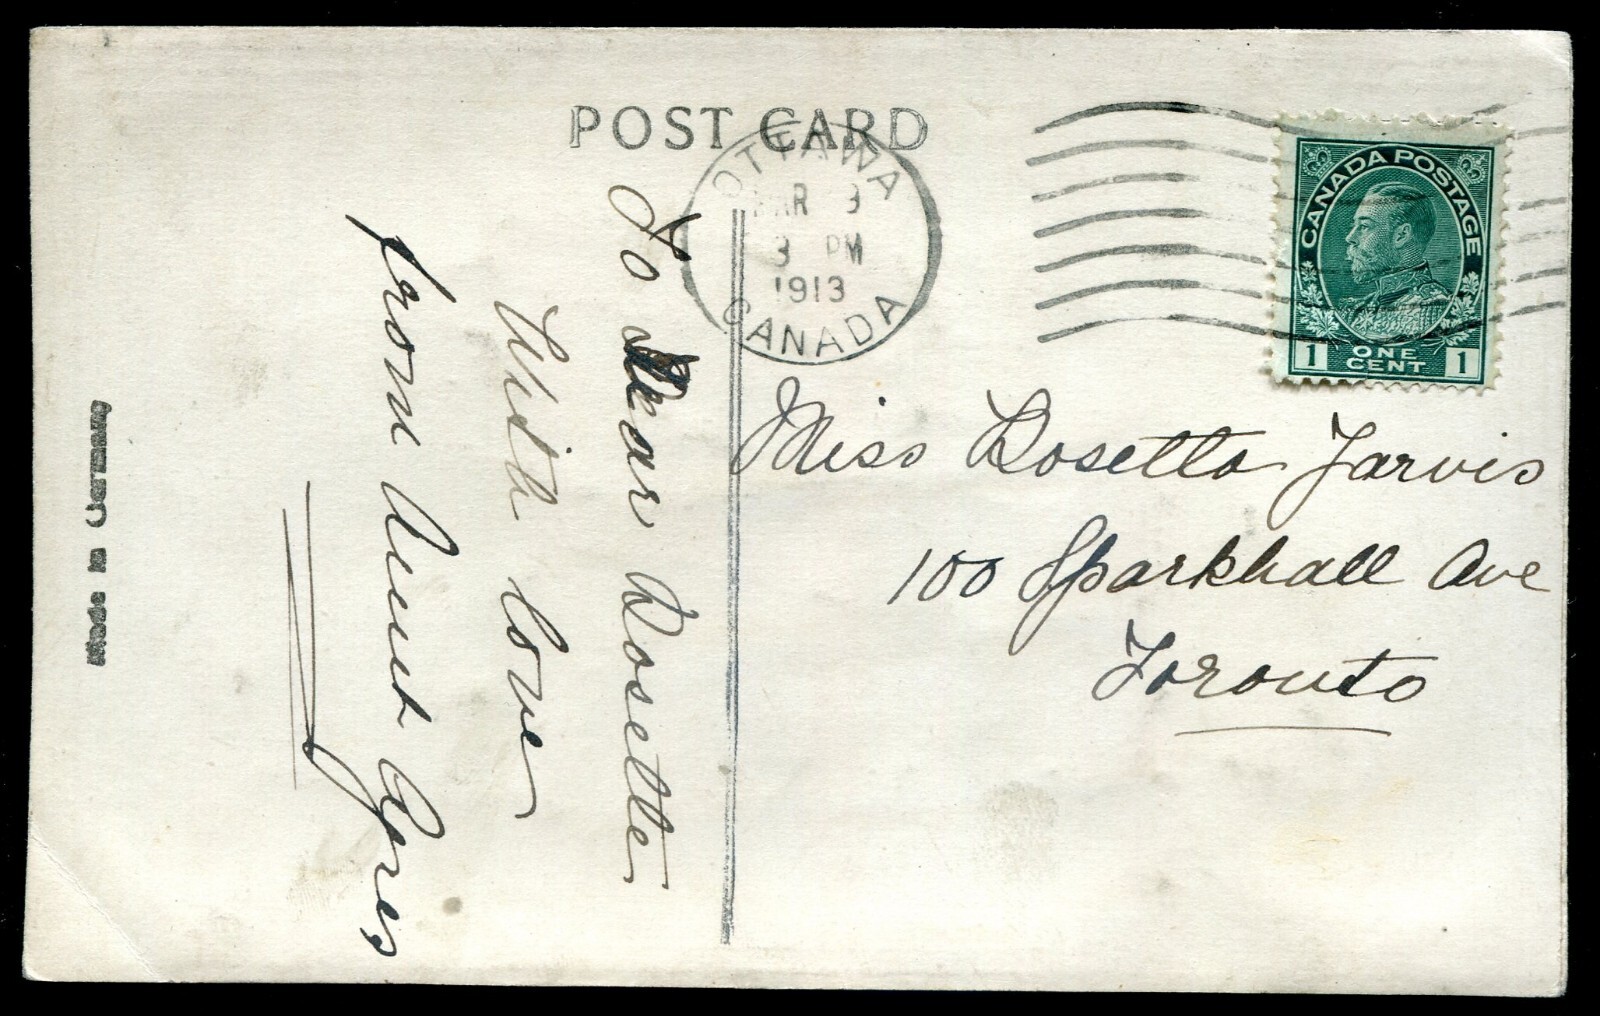 POST CARD
OTTAWA
MAR 3
3 PM
1913
CANADA
CANADA POSTAGE
1 ONE CENT 1
To Dear Rosette
With Love
from Aunt Agnes
Miss Rosetta Jarvis
100 Sparkhall Ave
Toronto
Made in Germany